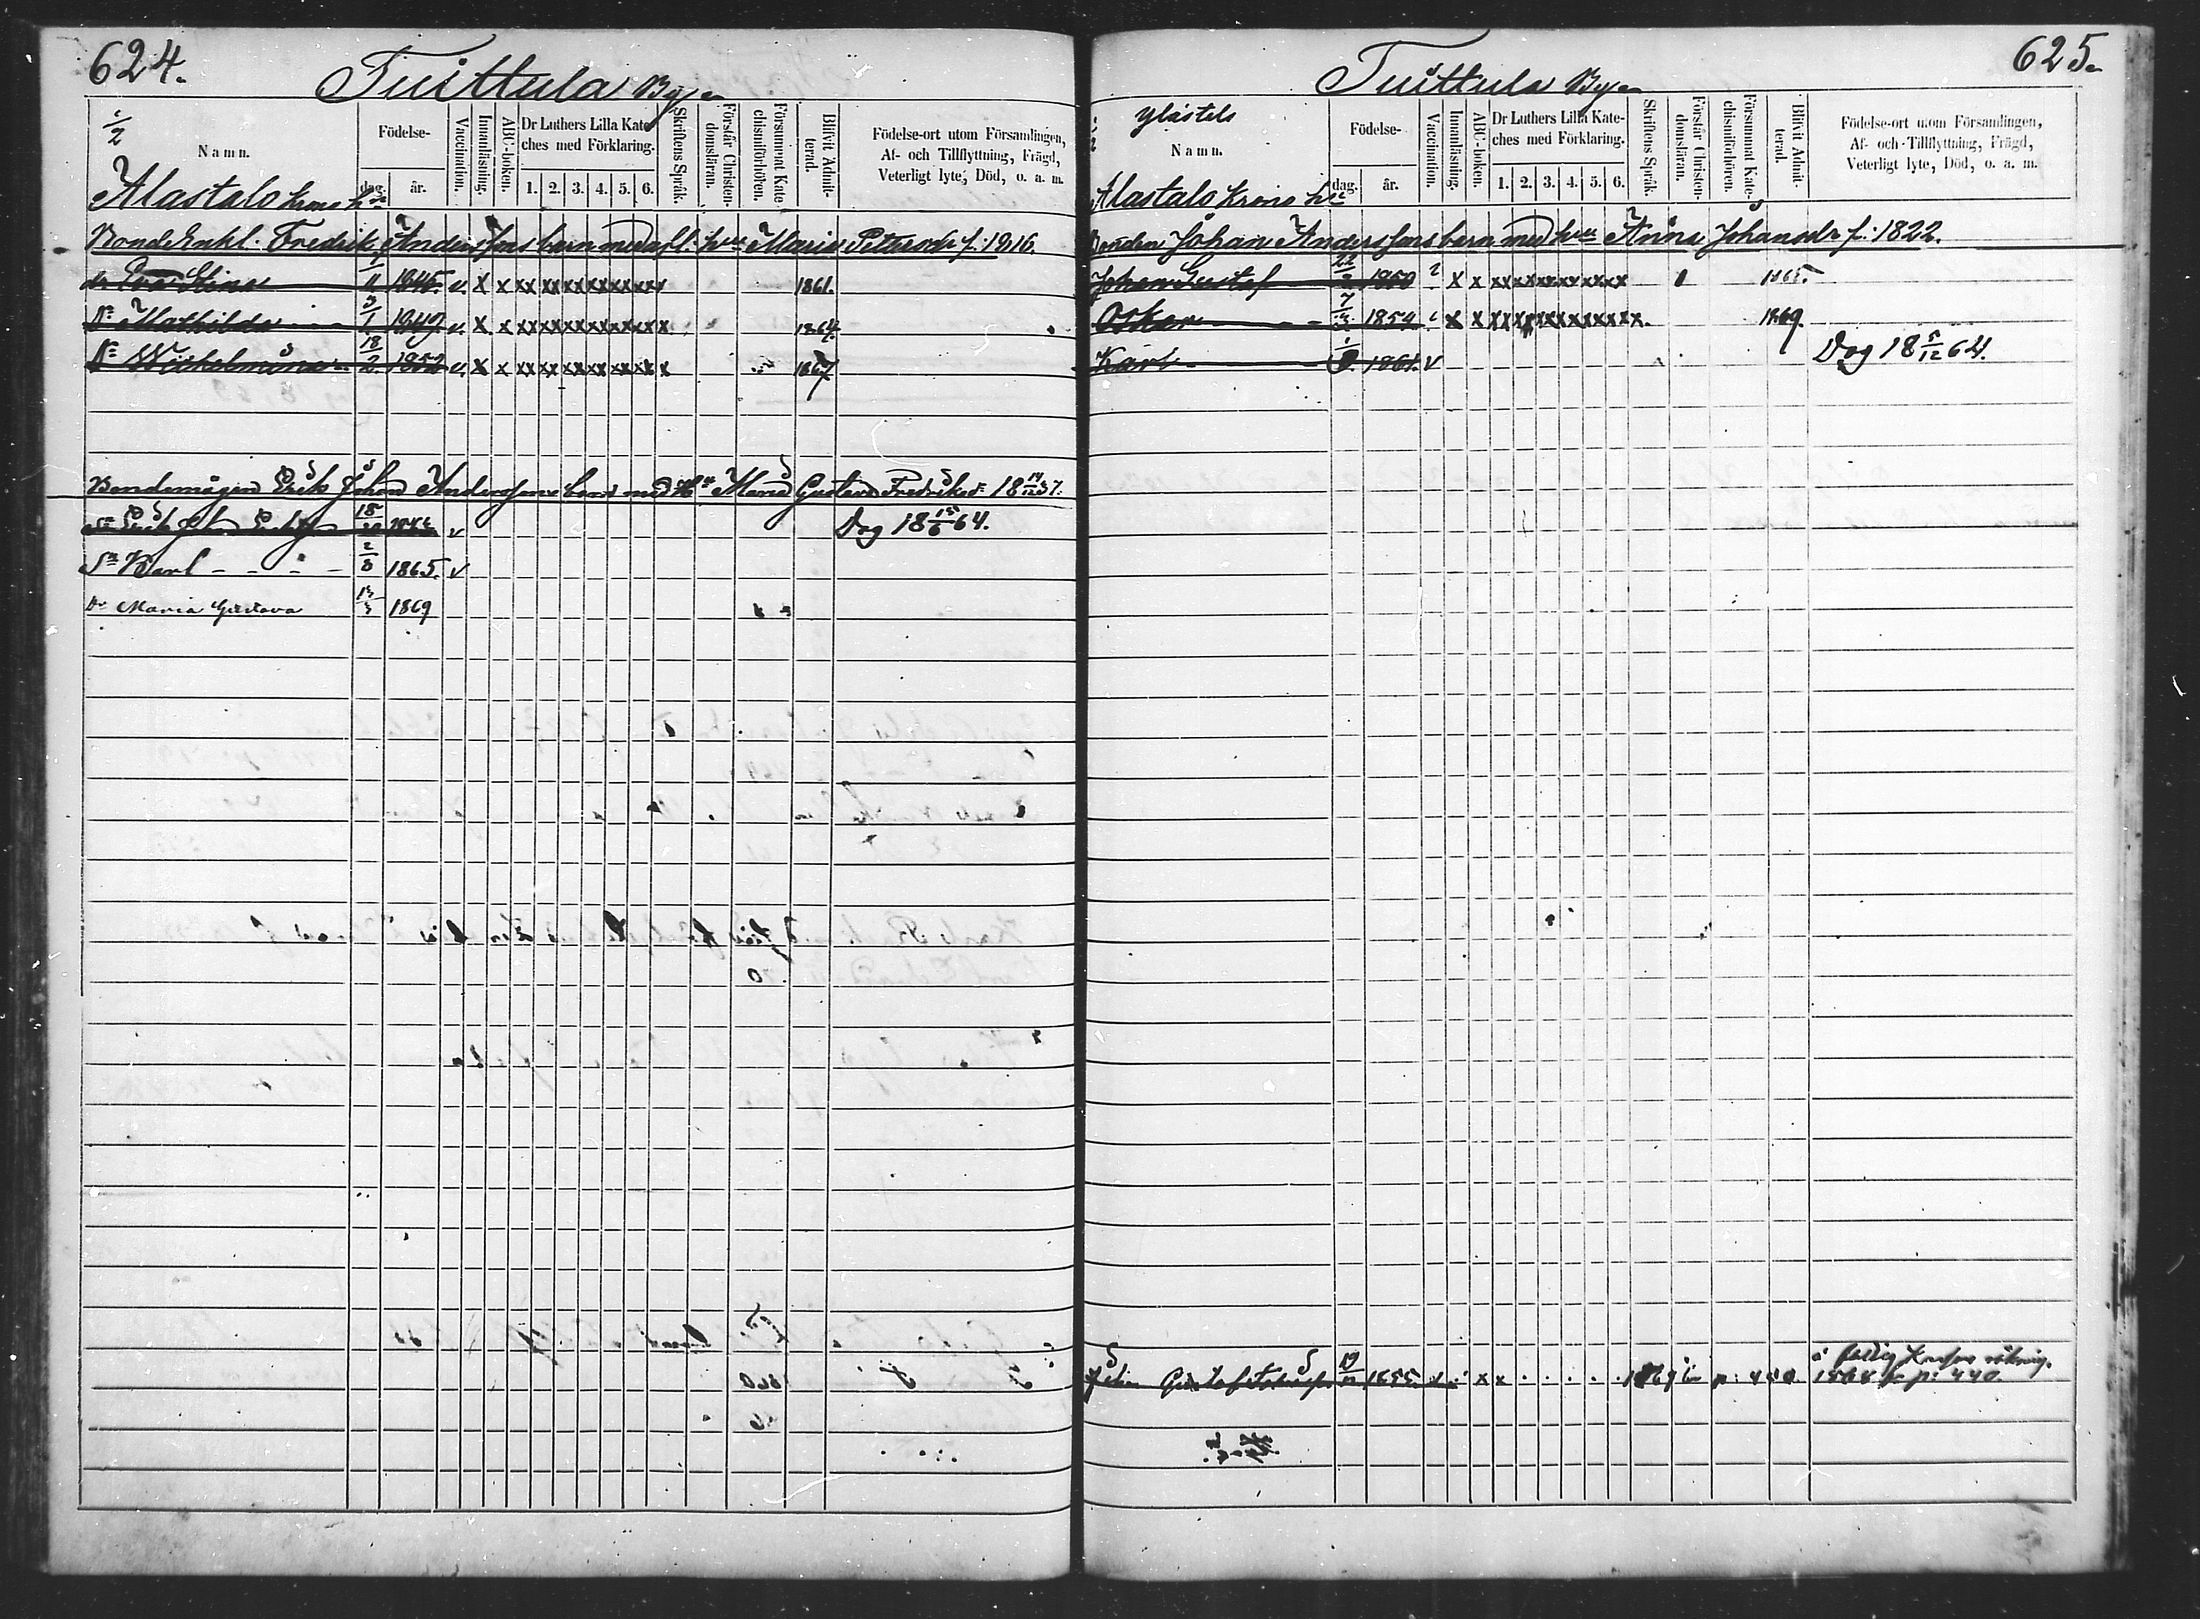 624.
Tuittula Byn
1/2
Namn.
Födelse-
dag.
år.
Vaccination.
Innanläsning.
ABC-boken.
Dr Luthers Lilla Kate-
ches med Förklaring.
1. 2. 3. 4. 5. 6.
Skriftens Språk.
Förstår Christen-
domsläran.
Försummat Kate-
chismiförhören.
Blifvit Admit-
terad.
Födelse-ort utom Församlingen,
Af- och Tillflyttning, Frägd,
Veterligt lyte, Död, o. a. m.
Alastalo krono hn
Bonde Enkl. Fredrik Anderssons barn med afl. hu Maria Petersdr f. 1816.
dr Eva Stina 1/11 1845. v. x x xx xx xx xx xx xx 1861.
Dr Mathilda 3/1 1849. v. x x xx xx xx xx xx xx x 1864.
Dr Wilhelmina 18/2 1852 v. x x xx xx xx xx xx xx x 1867
Bondemågen Erik Johan Anderssons barn med Hu Maria Gustava Fredriksdr 18 14/12 37.
Sn Erik Johan 18 v Dog 18 15/6 64.
Sn Karl - - " - 2/8 1865. v
Dr Maria Gustava 13/3 1869
625.
Tuittula Byn
Ylästalo
Namn.
Födelse-
dag.
år.
Vaccination.
Innanläsning.
ABC-boken.
Dr Luthers Lilla Kate-
ches med Förklaring.
1. 2. 3. 4. 5. 6.
Skriftens Språk.
Förstår Christen-
domsläran.
Försummat Kate-
chismiförhören.
Blifvit Admit-
terad.
Födelse-ort utom Församlingen,
Af- och Tillflyttning, Frägd,
Veterligt lyte, Död, o. a. m.
Alastalo krono hn
Bonden Johan Anderssons barn med hu Anna Johansdr f. 1822.
Johan Gustaf 22/2 1850 x x xx xx xx xx xx xx 1865.
Oskar 7/3 1854 x x xx xx xx xx xx xx x. 1869.
Karl 1861. v Dog 18 5/12 64.
Johan Gustaf 1855. x x 1869 p: 440
1868 fr p: 440